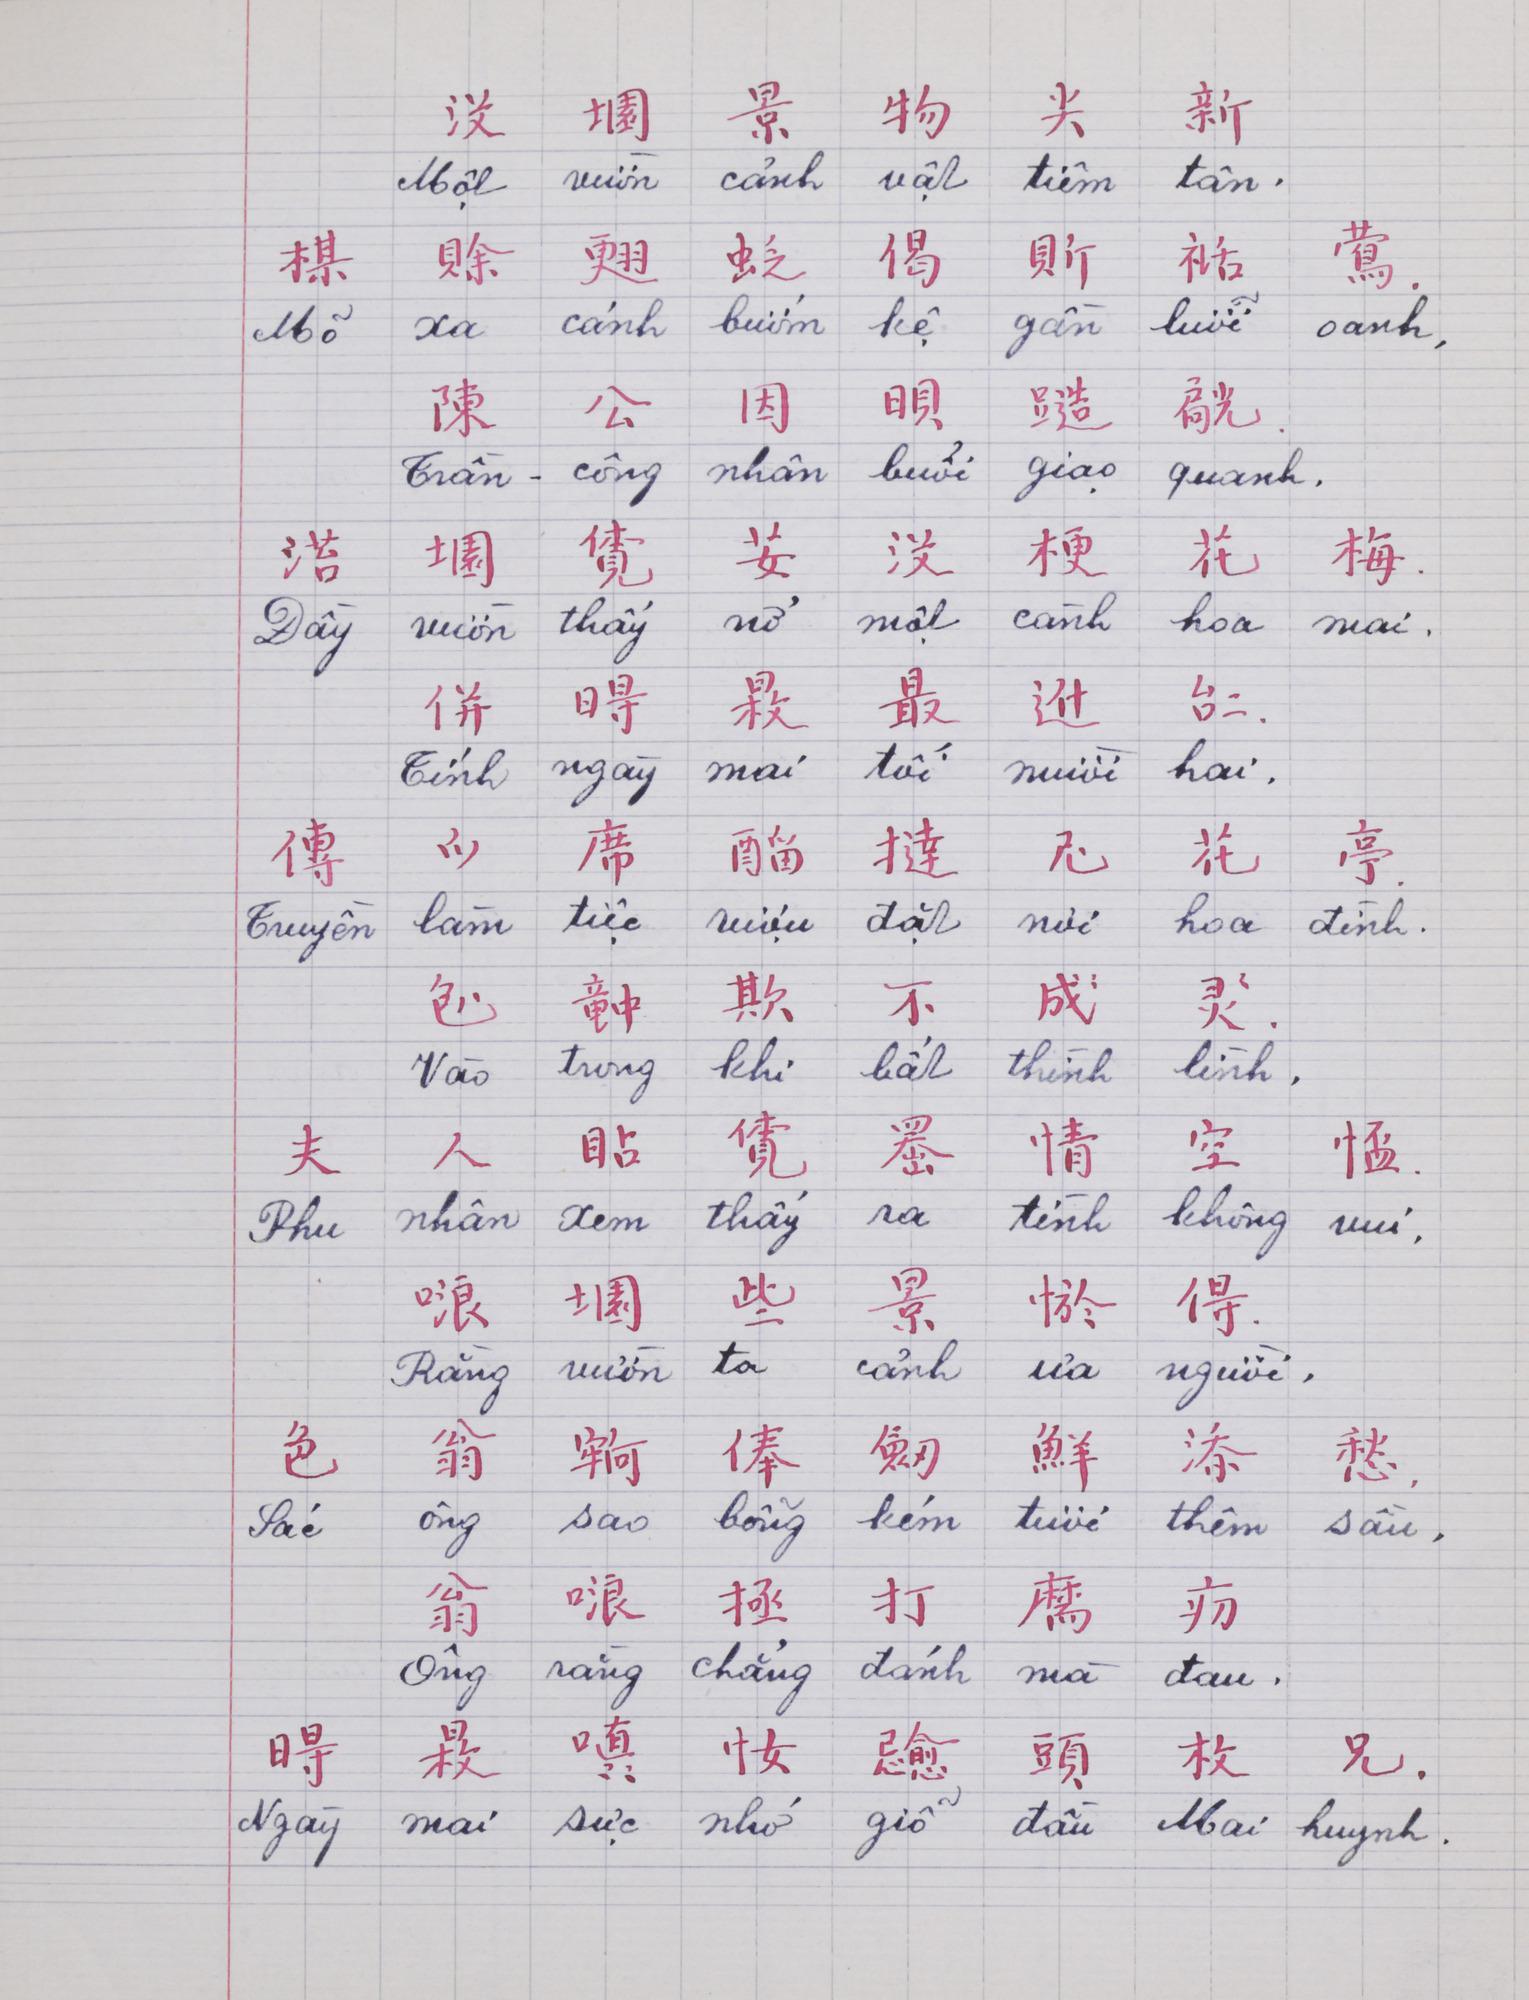 沒 園 景 物 尖 新
Một vườn cảnh vật tiêm tân.
賒 蜆 偈 祜 鶯.
Mỗ xa cánh bướm kệ gần lưỡi oanh,
陳 公 因 𣇜 躂
Trần - công nhân buổi giạo quanh.
𡑰 𧡊 𦬑 沒 梗 花 梅.
Dầy vườn thấy nở một cành hoa mai.
併 𣈜 𣋽 最 𨑮 𠄩.
Tính ngày mai tối mười hai.
傳 𫜵 席 𨢇 撻 尼 花 亭.
Truyền làm tiệc rượu đặt nơi hoa đình.
𠓨 𥪝 欺 不 成 灵.
Vào trong khi bất thình lình.
夫 人 䀡 𧡊 𠚢 情 空 𢝙.
Phu nhân xem thấy ra tình không vui,
哴 園 些 景 㤇 㝵.
Rằng vườn ta cảnh ủa người.
色 翁 俸 劔 鮮 添 愁.
Sắc ông sao bỗng kém tươi thêm sầu,
翁 哴 拯 打 𦓡 𤴬
Ông rằng chẳng đánh mà đau.
𣈜 𣋽 嗔 𢖵 頭 枚 兄.
Ngày mai sực nhớ giỗ đầu Mai huynh.